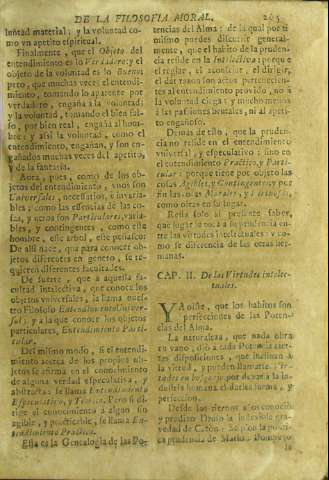 DE LA FILOSOFIA MORAL. 205
luntad material; y la voluntad co-
mo vn apetito espiritual.
Finalmente, que el Objeto del
entendimiento es lo Verdadero: y el
objeto de la voluntad es lo Bueno;
pero, que muchas vezes el entendi-
miento, tomando lo aparente por
verdadero, engaña a la voluntad;
y la voluntad, tomando el bien fal-
so, por bien real, engaña al hom-
bre: y assi la voluntad, como el
entendimiento, engañan, y son en-
gañados muchas vezes del apetito,
y de la fantasia.
Aora, pues, como de los ob-
jetos del entendimiento, vnos son
Universales, necessarios, è invaria-
bles; como las essencias de las co-
sas, y otros son Particulares, varia-
bles, y contingentes, como este
hombre, este arbol, este peñasco:
De alli nace, que para conocer ob-
jetos diferentes en genero, se re-
quieren diferentes facultades.
De suerte, que a aquella fa-
cultad intelectiva, que conoce los
objetos vniversales, la llama nues-
tro Filosofo Entendimiento Univer-
sal; y a la que conoce los objetos
particulares, Entendimiento Parti-
cular.
Del mismo modo, si el entendi-
miento acerca de los propios ob-
jetos se afirma en el conocimiento
de alguna verdad especulativa, y
abstracta; se llama Entendimiento
Especulativo, y Teorico. Pero si di-
rige el conocimiento à algun fin
agible, y practicable, se llama En-
tendimiento Practico.
Esta es la Genealogia de las Po-
tencias del Alma: de la qual por ti
mismo puedes discurrir general-
mente, que el habito de la pruden-
cia reside en la Intelectiva: porque
el reglar, el aconsejar, el dirigir,
el dar razon son actos pertenecien-
tes al entendimiento provido, no à
la voluntad ciega; y mucho menos
à las passiones brutales, ni al ape-
tito engañoso.
Demas de esto, que la pruden-
cia no reside en el entendimiento
vniversal, y especulativo; sino en
el entendimiento Practico, y Parti-
cular: porque tiene por objeto las
cosas Agibles, y Contingentes; y por
fin las cosas Morales, y
como otras en su lugar.
Resta solo al presente saber,
que lugar le toca à su prudencia en-
tre las virtudes intelectuales: y co-
mo se diferencia de las otras her-
manas.
CAP. II. De las Virtudes intelec-
tuales.
YA oiste, que los habitos son
perfecciones de las Poten-
cias del Alma.
La naturaleza, que nada obra
en vano, diò a cada Potencia cier-
tas disposiciones, que inclinan à
la virtud, y pueden llamarse
por devarà la in-
dustria humana el darlas forma, y
perfeccion.
Desde los tiernos años conocidò
y predixo la indexible gra-
vedad de Caton: la politi-
ca prudencia de Mario: Pompeyo